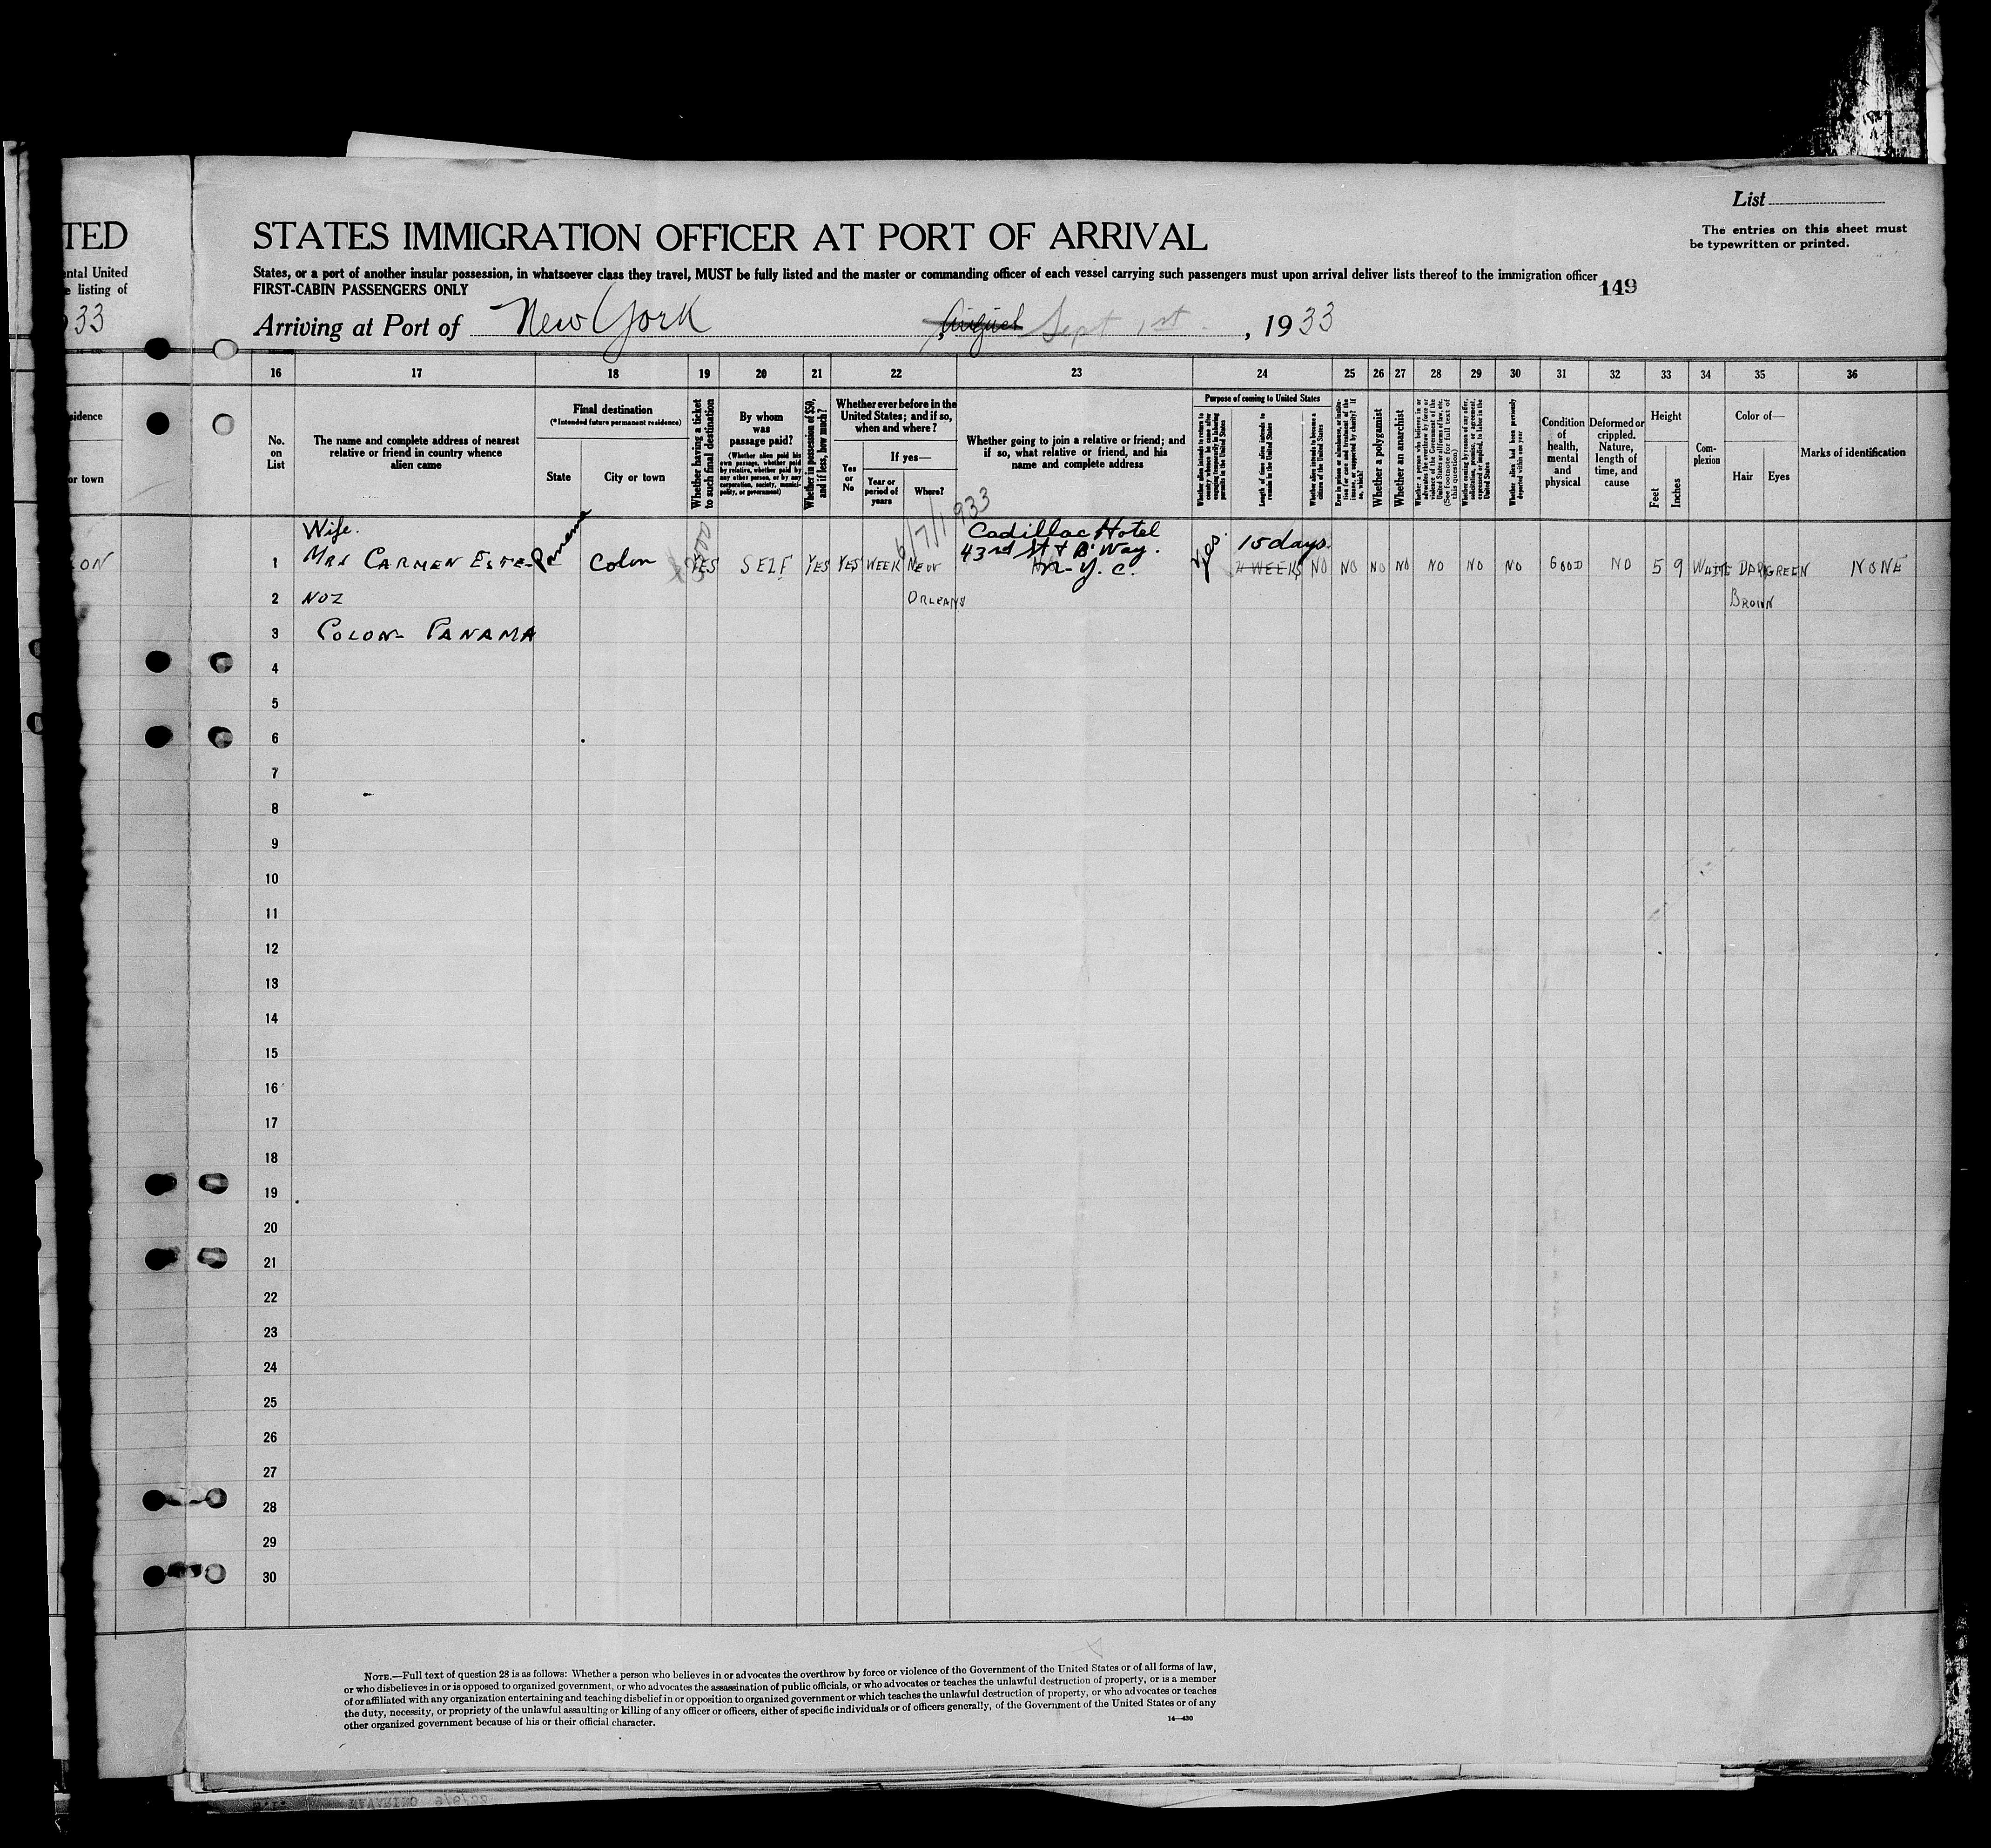 List
The entries on this sheet must
be typewritten or printed.
TED
STATES IMMIGRATION OFFICER AT PORT OF ARRIVAL
ental United
listing of
33
States, or a port of another insular possession, in whatsoever class they travel, MUST be fully listed and the master or commanding officer of each vessel carrying such passengers must upon arrival deliver lists thereof to the immigration officer
FIRST-CABIN PASSENGERS ONLY
149
Arriving at Port of New York, August Sept 1st, 1933
16 17 18 19 20 21 22 23 24 25 26 27 28 29 30 31 32 33 34 35 36
sidence
or town
No.
on
List
The name and complete address of nearest
relative or friend in country whence
alien came
Final destination
(*Intended future permanent residence)
State
City or town
Whether having a ticket
to such final destination
By whom
was
passage paid?
(Whether alien paid his
own passage, whether paid
by relative, whether paid by
any other person, or by any
corporation, society, munici-
pality, or government)
Whether in possession of $50,
and if less, how much?
Whether ever before in the
United States; and if so,
when and where?
If yes—
Yes
or
No
Year or
period of
years
Where?
Whether going to join a relative or friend; and
if so, what relative or friend, and his
name and complete address
Purpose of coming to United States
Whether alien intends to return to
country whence he came after
engaging temporarily in laboring
pursuits in the United States
Length of time alien intends to
remain in the United States
Whether alien intends to become a
citizen of the United States
Ever in prison or almshouse, or institu-
tion for care and treatment of the
insane, or supported by charity? If
so, which?
Whether a polygamist
Whether an anarchist
Whether a person who believes in or
advocates the overthrow by force or
violence of the Government of the
United States or all forms of law, etc.
(See footnote for full text of
this question)
Whether coming by reason of any offer,
solicitation, promise, or agreement,
expressed or implied, to labor in the
United States
Whether alien had been previously
deported within one year
Condition
of
health,
mental
and
physical
Deformed or
crippled.
Nature,
length of
time, and
cause
Height
Feet
Inches
Com-
plexion
Color of—
Hair
Eyes
Marks of identification
Wife.
6/7/1933
Cadillac Hotel
43rd St & B'way.
15 days.
ON
1 MRS CARMEN ESTE- Panama Colon YES SELF YES YES WEEK NEW N.Y.C. Yes. 2 WEEKS NO NO NO NO NO NO NO GOOD NO 5 9 WHITE DARK GREEN NONE
2 NOZ ORLEANS BROWN
3 COLON- PANAMA
4
5
6
7
8
9
10
11
12
13
14
15
16
17
18
19
20
21
22
23
24
25
26
27
28
29
30
NOTE.—Full text of question 28 is as follows: Whether a person who believes in or advocates the overthrow by force or violence of the Government of the United States or of all forms of law,
or who disbelieves in or is opposed to organized government, or who advocates the assassination of public officials, or who advocates or teaches the unlawful destruction of property, or is a member
of or affiliated with any organization entertaining and teaching disbelief in or opposition to organized government or which teaches the unlawful destruction of property, or who advocates or teaches
the duty, necessity, or propriety of the unlawful assaulting or killing of any officer or officers, either of specific individuals or of officers generally, of the Government of the United States or of any
other organized government because of his or their official character.
14—430